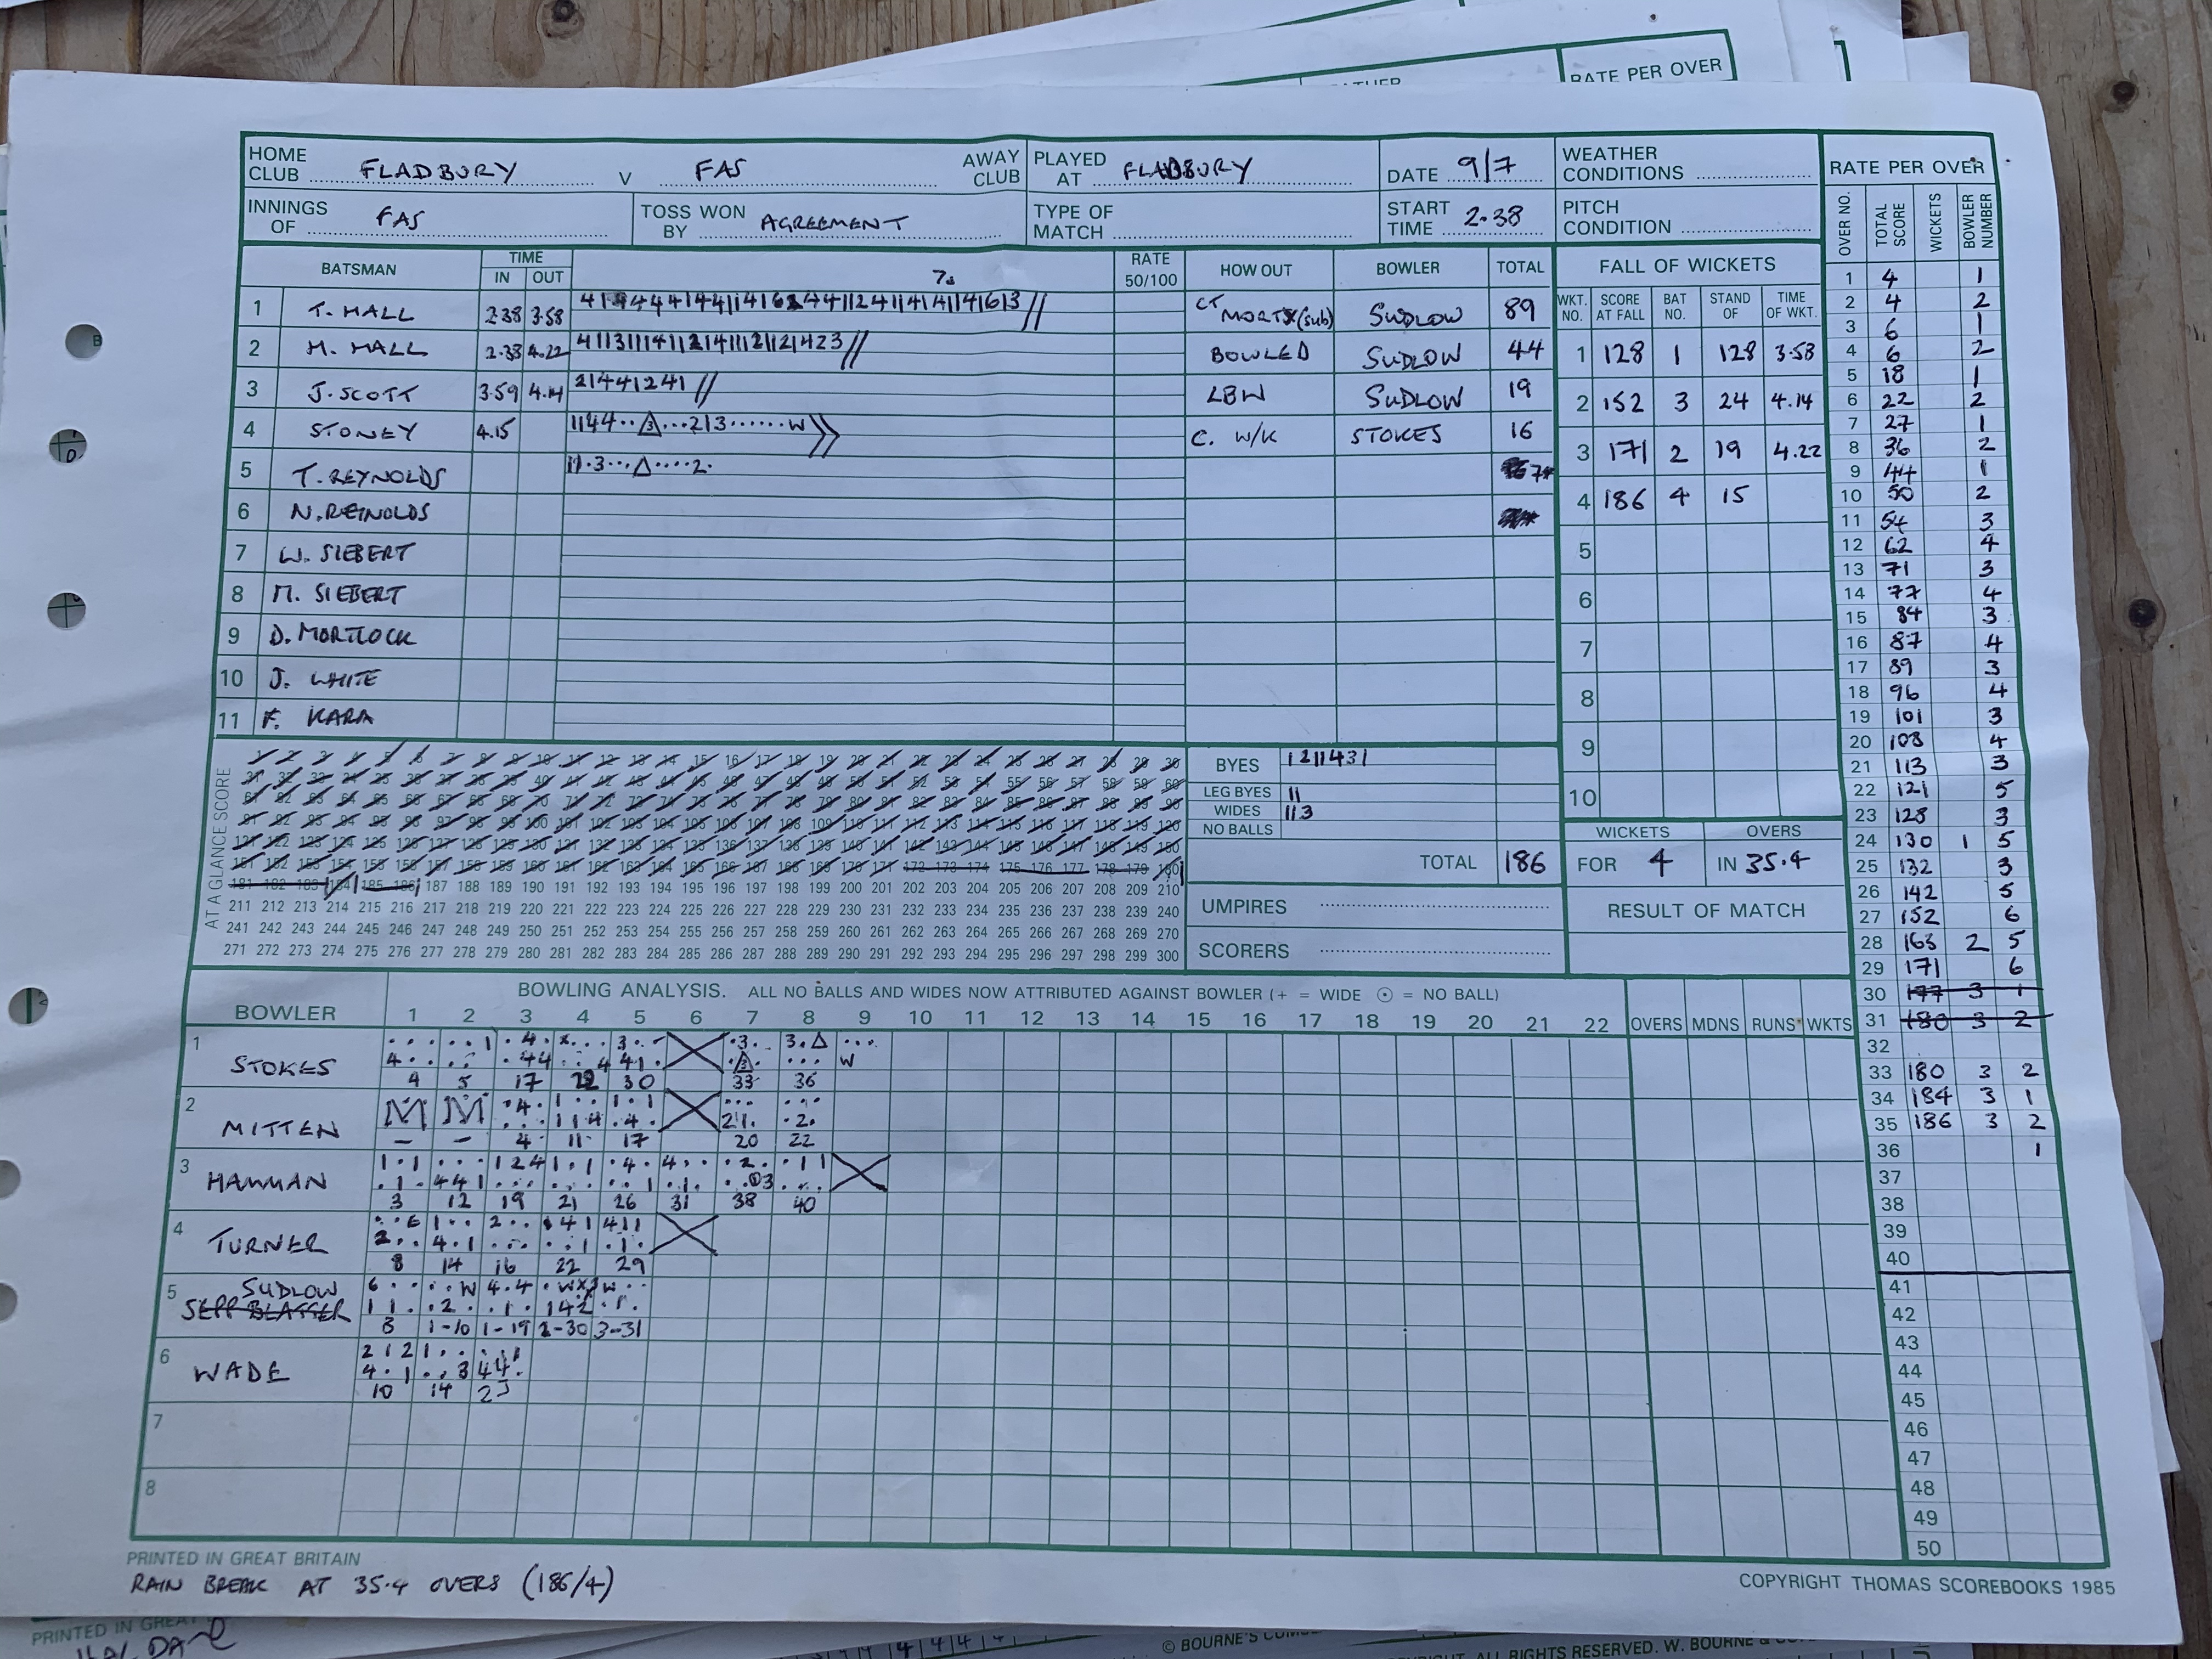 RATE PER OVER
HOME CLUB FLADBURY V FAS AWAY CLUB
PLAYED AT FLADBURY
DATE 9/7
WEATHER CONDITIONS
INNINGS OF FAS
TOSS WON BY AGREEMENT
TYPE OF MATCH
START TIME 2.38
PITCH CONDITION
BATSMAN TIME IN OUT RATE 50/100 HOW OUT BOWLER TOTAL
7s
1 T. HALL 2.38 3.58 CT MORTX(sub) SUDLOW 89
2 M. HALL 2.38 4.22 411311141121411121121423// BOWLED SUDLOW 44
3 J. SCOTT 3.59 4.14 21441241 // LBW SUDLOW 19
4 STONEY 4.15 1144..3...213......W C. W/K STOKES 16
5 T. REYNOLDS 11.3...△....2. 7*
6 N. REYNOLDS
7 W. SIEBERT
8 M. SIEBERT
9 D. MORTLOCK
10 J. WHITE
11 F. KARA
FALL OF WICKETS
WKT. NO. SCORE AT FALL BAT NO. STAND OF TIME OF WKT.
1 128 1 128 3.58
2 152 3 24 4.14
3 171 2 19 4.22
4 186 4 15
5
6
7
8
9
10
AT A GLANCE SCORE
1 2 3 4 5 6 7 8 9 10 11 12 13 14 15 16 17 18 19 20 21 22 23 24 25 26 27 28 29 30
31 32 33 34 35 36 37 38 39 40 41 42 43 44 45 46 47 48 49 50 51 52 53 54 55 56 57 58 59 60
61 62 63 64 65 66 67 68 69 70 71 72 73 74 75 76 77 78 79 80 81 82 83 84 85 86 87 88 89 90
91 92 93 94 95 96 97 98 99 100 101 102 103 104 105 106 107 108 109 110 111 112 113 114 115 116 117 118 119 120
121 122 123 124 125 126 127 128 129 130 131 132 133 134 135 136 137 138 139 140 141 142 143 144 145 146 147 148 149 150
151 152 153 154 155 156 157 158 159 160 161 162 163 164 165 166 167 168 169 170 171 172 173 174 175 176 177 178 179 180
181 182 183 184 185 186 187 188 189 190 191 192 193 194 195 196 197 198 199 200 201 202 203 204 205 206 207 208 209 210
211 212 213 214 215 216 217 218 219 220 221 222 223 224 225 226 227 228 229 230 231 232 233 234 235 236 237 238 239 240
241 242 243 244 245 246 247 248 249 250 251 252 253 254 255 256 257 258 259 260 261 262 263 264 265 266 267 268 269 270
271 272 273 274 275 276 277 278 279 280 281 282 283 284 285 286 287 288 289 290 291 292 293 294 295 296 297 298 299 300
BYES 1211431
LEG BYES 11
WIDES 113
NO BALLS
TOTAL 186
WICKETS OVERS
FOR 4 IN 35.4
UMPIRES
SCORERS
RESULT OF MATCH
BOWLING ANALYSIS. ALL NO BALLS AND WIDES NOW ATTRIBUTED AGAINST BOWLER (+ = WIDE ⊙ = NO BALL)
BOWLER 1 2 3 4 5 6 7 8 9 10 11 12 13 14 15 16 17 18 19 20 21 22 OVERS MDNS RUNS WKTS
1 STOKES
4 5 17 22 30 33 36
2 MITTEN
M M
– – 4 11 17 20 22
3 HAMMAN
3 12 19 21 26 31 38 40
4 TURNER
8 14 16 22 29
5 SUDLOW
SEPP BLATTER
8 1-10 1-19 2-30 3-31
6 WADE
10 14 23
7
8
RATE PER OVER
OVER NO. TOTAL SCORE WICKETS BOWLER NUMBER
1 4 1
2 4 2
3 6 1
4 6 2
5 18 1
6 22 2
7 27 1
8 36 2
9 44 1
10 50 2
11 54 3
12 62 4
13 71 3
14 77 4
15 84 3
16 87 4
17 89 3
18 96 4
19 101 3
20 108 4
21 113 3
22 121 5
23 128 3
24 130 1 5
25 132 3
26 142 5
27 152 6
28 163 2 5
29 171 6
30 177 3 1
31 180 3 2
32
33 180 3 2
34 184 3 1
35 186 3 2
36 1
37
38
39
40
41
42
43
44
45
46
47
48
49
50
PRINTED IN GREAT BRITAIN
RAIN BREAK AT 35.4 OVERS (186/4)
COPYRIGHT THOMAS SCOREBOOKS 1985
PRINTED IN GREAT
© BOURNE'S
ALL RIGHTS RESERVED. W. BOURNE &